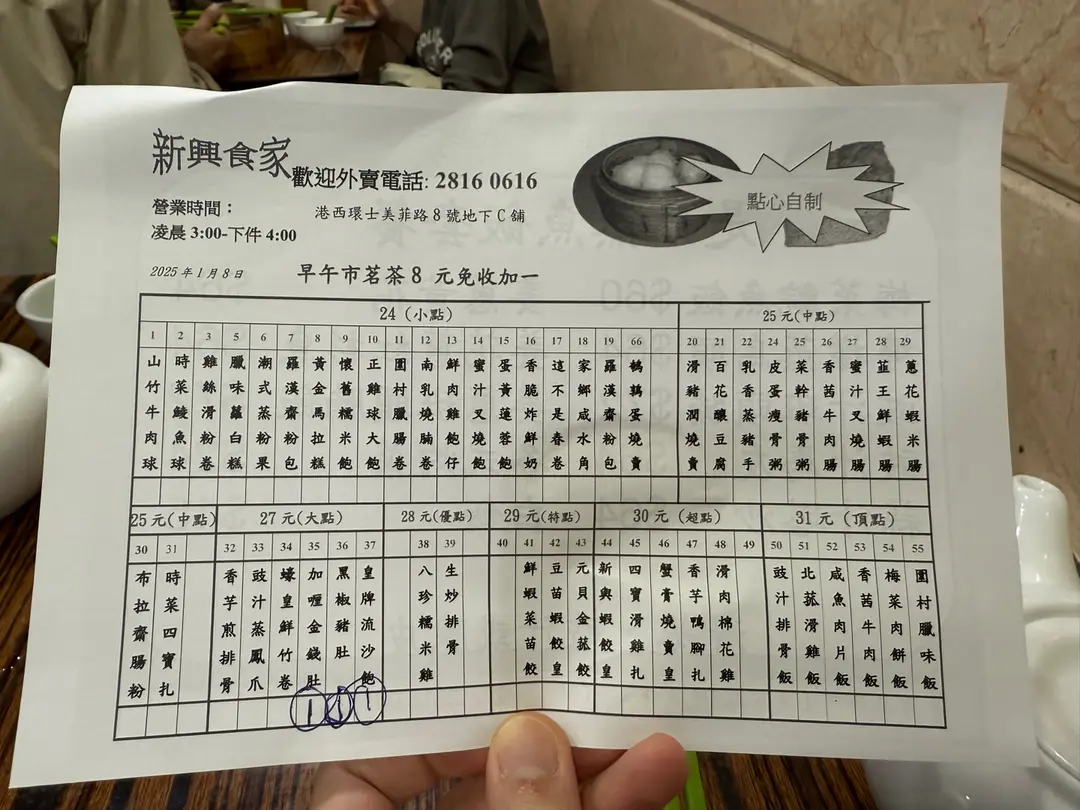 新興食家
歡迎外賣電話: 2816 0616
營業時間：
港西環士美菲路 8 號地下 C 舖
凌晨 3:00-下件 4:00
點心自制
2025 年 1 月 8 日
早午市茗茶 8 元免收加一
24 (小點)
25 元(中點)
1 2 3 5 6 7 8 9 10 11 12 13 14 15 16 17 18 19 66 20 21 22 24 25 26 27 28 29
山竹牛肉球
時菜鯪魚球
雞絲滑粉卷
臘味蘿白糕
潮式蒸粉果
羅漢齋粉包
黃金馬拉糕
懷舊糯米飽
正雞球大飽
圍村臘腸卷
南乳燒腩卷
鮮肉雞飽仔
蜜汁叉燒飽
蛋黃蓮蓉飽
香脆炸鮮奶
這不是春卷
家鄉咸水角
羅漢齋粉包
鵪鶉蛋燒賣
滑豬潤燒賣
百花釀豆腐
乳香蒸豬手
皮蛋瘦骨粥
菜幹豬骨粥
香茜牛肉腸
蜜汁叉燒腸
韮王鮮蝦腸
蔥花蝦米腸
25 元(中點)
27 元(大點)
28 元(優點)
29 元(特點)
30 元 (超點)
31 元 (頂點)
30 31 32 33 34 35 36 37 38 39 40 41 42 43 44 45 46 47 48 49 50 51 52 53 54 55
布拉齋腸粉
時菜四寶扎
香芋煎排骨
豉汁蒸鳳爪
蠔皇鮮竹卷
加喱金錢肚
黑椒豬肚
皇牌流沙飽
八珍糯米雞
生炒排骨
鮮蝦菜苗餃
豆苗蝦餃皇
元貝金菇餃
新興蝦餃皇
四寶滑雞扎
蟹膏燒賣皇
香芋鴨腳扎
滑肉棉花雞
豉汁排骨飯
北菰滑雞飯
咸魚肉片飯
香茜牛肉飯
梅菜肉餅飯
圍村臘味飯
1 1 1